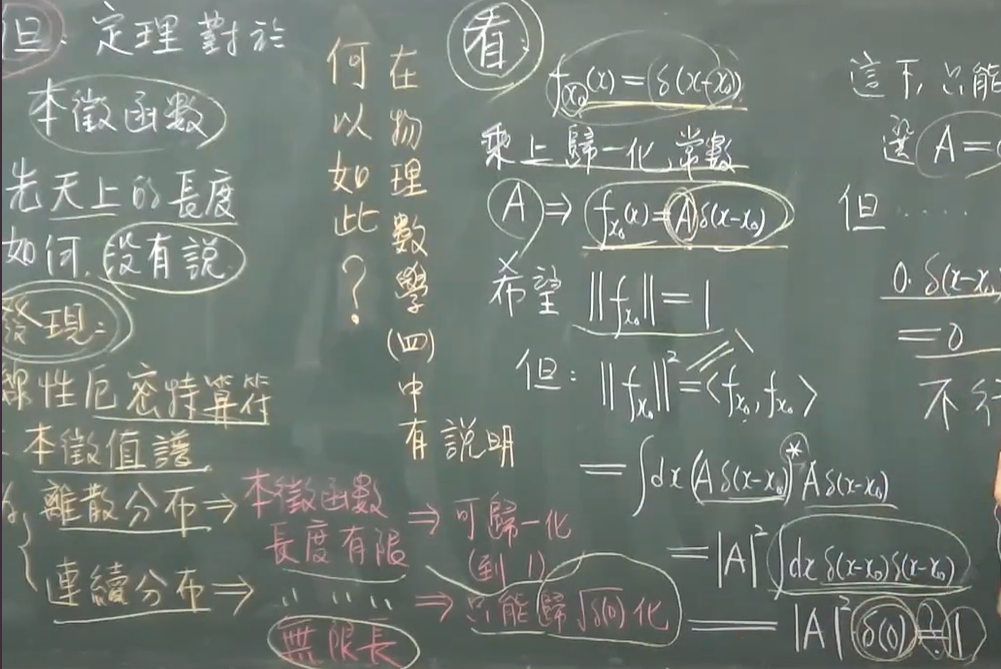 但: 定理對於
本徵函數
先天上的長度
如何,沒有說.
發現:
線性厄密特算符
本徵值譜
離散分布⇒本徵函數長度有限⇒可歸一化(到 1)
連續分布⇒〃 ‥ ‥ 無限長⇒只能歸√δ(0)化
何以如此?
在物理數學(四)中有說明
看:
f_{x₀}(x)=δ(x-x₀)
乘上歸一化常數
A ⇒ f_{x₀}(x)=Aδ(x-x₀)
希望 ||f_{x₀}||=1
但: ||f_{x₀}||²=<f_{x₀},f_{x₀}>
=∫dx(Aδ(x-x₀))*Aδ(x-x₀)
=|A|²∫dx δ(x-x₀)δ(x-x₀)
=|A|²δ(0)≟1
這下,只能
選 A=
但 ‥‥
0·δ(x-x₀
=0
不行